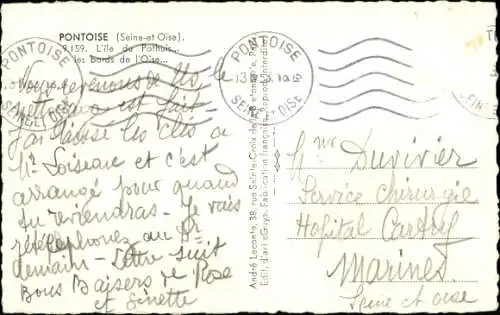 PONTOISE (Seine-et Oise).
9.159. L'île du Pothuis...
les bords de l'Oise...
PONTOISE
SEINE ET OISE
Nous revenons de Us le
est fait
j'ai laissé les clés à
Mr Loiseau et c'est
arrangé pour quand
tu reviendras - Je vais
retéléphoner au Dr
demain - Lettre suit
Bons Baisers de Rose
et Ginette
PONTOISE
SEINE ET OISE
André Leconte, 38, rue Sainte-Croix de la Bretonnerie, Paris
Edit. d'art d'Gryp. Fabrication française. Reprod. interdite
Mme Duvivier
Service Chirurgie
Hôpital Cartry
Marines
Seine et Oise